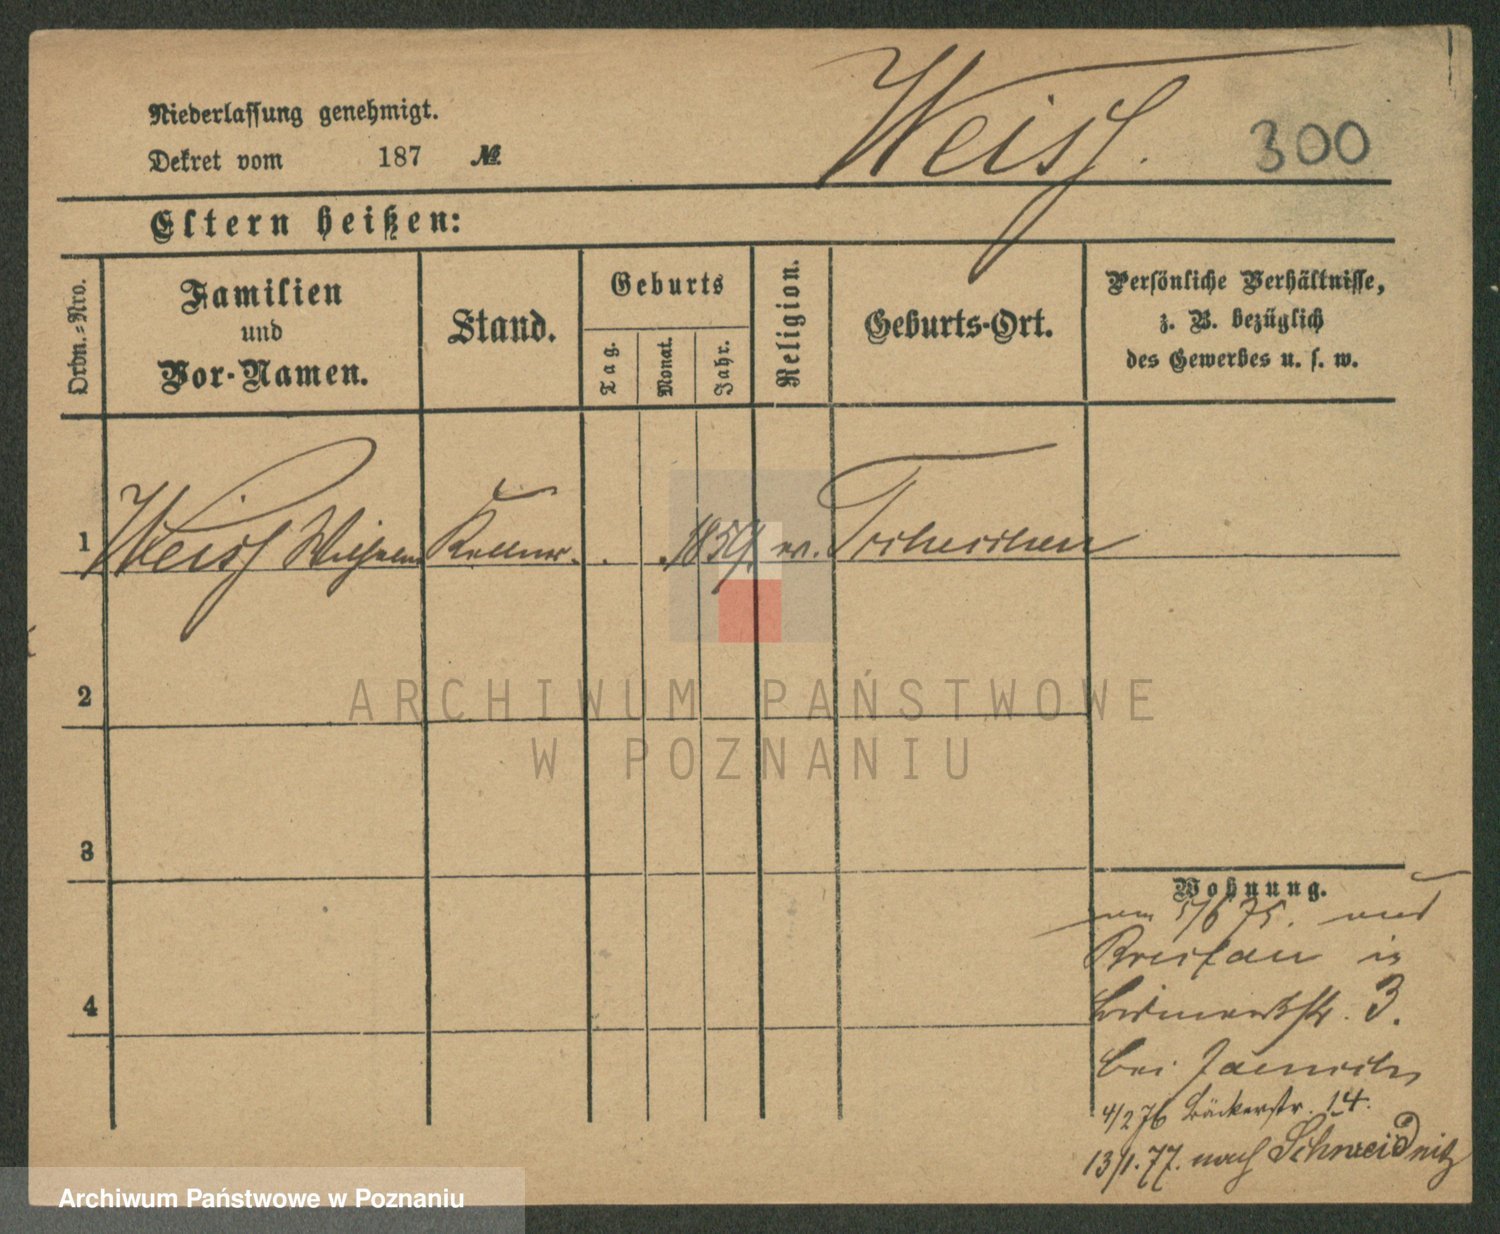 Weiss. 300
Niederlassung genehmigt.
Dekret vom 187 №
Eltern heißen:
Ordn.-Nro.
Familien
und
Vor-Namen.
Stand.
Geburts
Tag.
Monat.
Jahr.
Religion.
Geburts-Ort.
Persönliche Verhältnisse,
z. B. bezüglich
des Gewerbes u. s. w.
1 Weiss Wilhelm Kellner. ev.
2
3
4
Wohnung.
5/6 75.
Breslau in
3.
bei
4/2 76 Bäckerstr. 14.
13/1. 77. nach Schweidnitz
ARCHIWUM PAŃSTWOWE
W POZNANIU
Archiwum Państwowe w Poznaniu